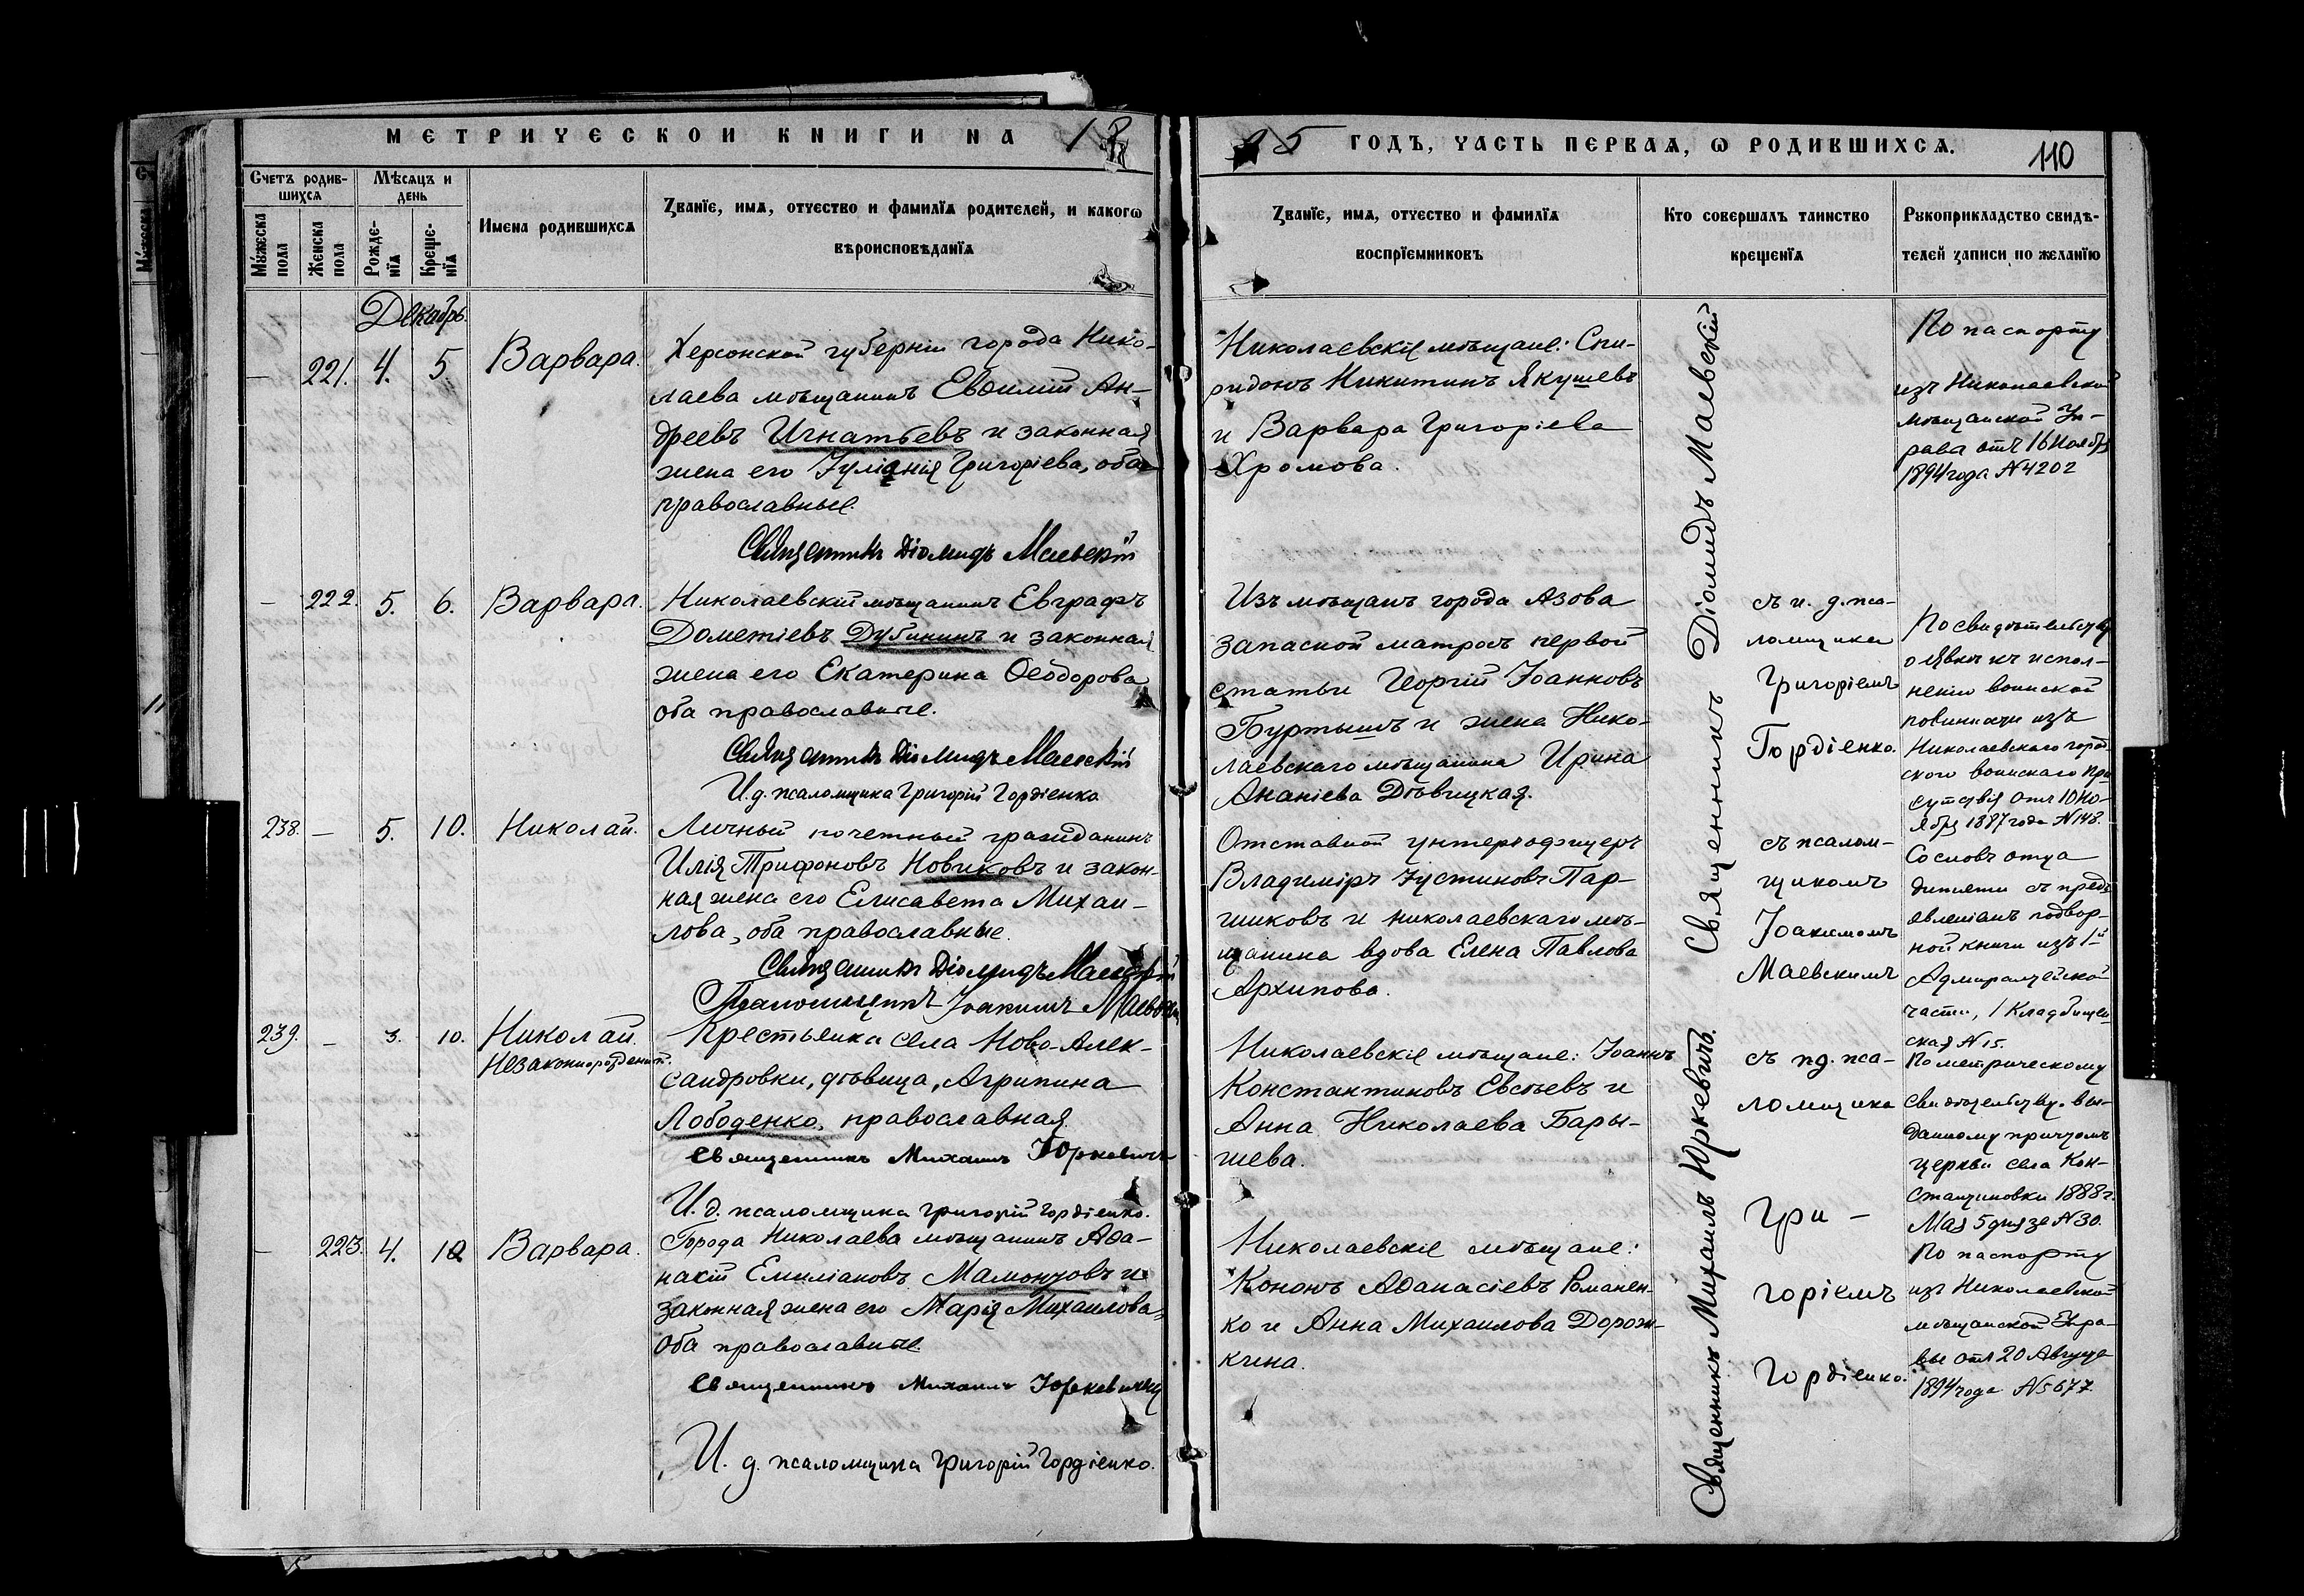 МЕТРИЧЕСКОЙ КНИГИ НА 18
95 ГОДЪ, ЧАСТЬ ПЕРВАЯ, Ѡ РОДИВШИХСЯ.
110
Счетъ родив-
шихся
Мѣсяцъ и
день
Мужеска
пола
Женска
пола
Рожде-
нїя
Креще-
нїя
Имена родившихся
Званїе, имя, отчество и фамилїя родителей, и какогѡ
вѣроисповѣданїя
Званїе, имя, отчество и фамилїя
воспрїемниковъ
Кто совершалъ таинство
крещенїя
Рукоприкладство свидѣ-
телей записи по желанїю
Декабрь.
— 221. 4. 5 Варвара.
Херсонской губерніи города Нико-
лаева мѣщанинъ Евѳимій Ан-
дреевъ Игнатьевъ и законная
жена его Іуліанія Григоріева, оба
православные.
Священникъ Діомидъ Маевскій
Николаевскіе мѣщане: Спи-
ридонъ Никитинъ Якушевъ
и Варвара Григоріева
Хромова.
По паспорту
изъ Николаевской
мѣщанской Уп-
равы отъ 16 Ноября
1894 года N 4202
— 222. 5. 6. Варвара.
Николаевскій мѣщанинъ Евграфъ
Дометіевъ Дубининъ и законная
жена его Екатерина Ѳеодорова
оба православные.
Священникъ Діомидъ Маевскій
И. д. псаломщика Григорій Гордіенко
Изъ мѣщанъ города Азова
запасной матросъ первой
статьи Георгій Іоанновъ
Буртышъ и жена Нико-
лаевскаго мѣщанина Ирина
Ананіева Дѣвицкая.
съ и. д. пса-
ломщика
Григоріемъ
Гордіенко.
По свидѣтельству
о явкѣ къ испол-
ненію воинской
повинности изъ
Николаевскаго город-
скаго воинскаго при-
сутствія отъ 10 Но-
ября 1887 года N 148.
238. — 5. 10. Николай.
Личный почетный гражданинъ
Илія Трифоновъ Новиковъ и закон-
ная жена его Елисавета Михаи-
лова, оба православные.
Священникъ Діомидъ Маевскій
Псаломщикъ Іоакимъ Маевскій
Отставной унтеръ-офицеръ
Владиміръ Іустиновъ Пар-
шиковъ и николаевскаго мѣ-
щанина вдова Елена Павлова
Архипова.
съ псалом-
щикомъ
Іоакимомъ
Маевскимъ
Со словъ отца
дитяти съ предъ-
явленіемъ подвор-
ной книги изъ 1-й
Адмиралтейской
части, 1 Кладбищен-
ская N 15.
239. — 3. 10. Николай.
Незаконнорожденный.
Крестьянка села Ново-Алек-
сандровки, дѣвица, Агрипина
Лободенко, православная.
Священникъ Михаилъ Юркевичъ
И. д. псаломщика Григорій Гордіенко.
Николаевскіе мѣщане: Іоаннъ
Константиновъ Евсѣевъ и
Анна Николаева Бары-
шева.
съ и. д. пса-
ломщика
Гри-
горіемъ
Гордіенко.
По метрическому
свидѣтельству, вы-
данному причтомъ
церкви села Кон-
стантиновки 1888 г.
Мая 5 дня за N 30.
— 223. 4. 10 Варвара.
Города Николаева мѣщанинъ Аѳа-
насій Емиліановъ Мамонтовъ и
законная жена его Марія Михаилова,
оба православные.
Священникъ Михаилъ Юркевичъ
И. д. псаломщика Григорій Гордіенко.
Николаевскіе мѣщане:
Кононъ Аѳанасіевъ Романен-
ко и Анна Михаилова Дорож-
кина.
По паспорту
изъ Николаевской
мѣщанской Упра-
вы отъ 20 Августа
1894 года N 5677.
Священникъ Діомидъ Маевскій
Священникъ Михаилъ Юркевичъ.